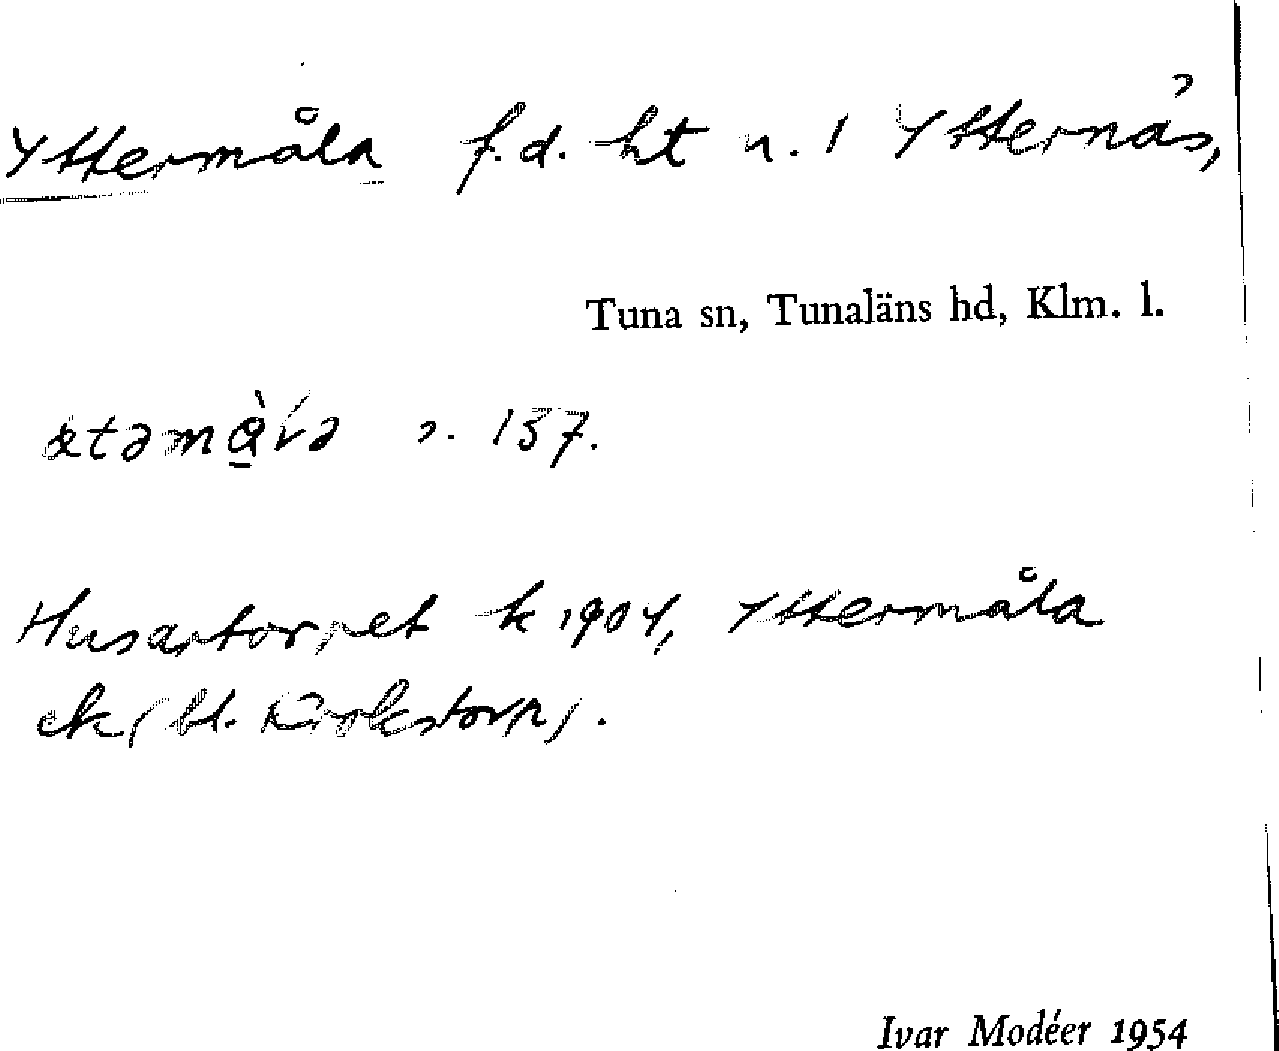 Yttermåla f.d. ht n. 1 Ytternäs,
Tuna sn, Tunaläns hd, Klm. l.
s. 157.
Husartorpet k 1904, Yttermåla
ek (bl. Krokstorp).
Ivar Modéer 1954